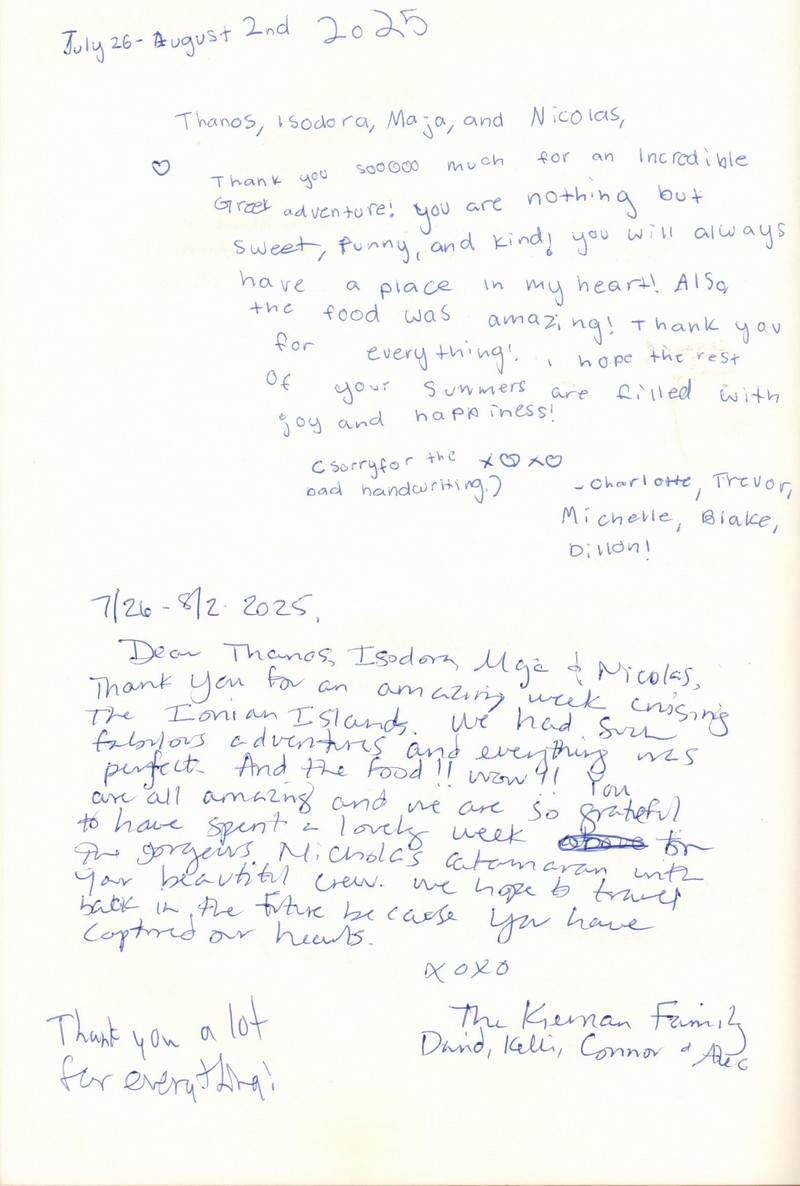 July 26 - August 2nd 2025
Thanos, Isodora, Maja, and Nicolas,
♡ Thank you sooooo much for an Incredible
Greek adventure! you are nothing but
sweet, funny, and kind! you will always
have a place in my heart! Also,
the food was amazing! Thank you
for everything! I hope the rest
of your summers are filled with
joy and happiness!
(sorry for the x♡x♡
bad handwriting.)
- Charlotte, Trevor,
Michelle, Blake,
Dillon!
7/26 - 8/2. 2025.
Dear Thanos, Isodora, Maja & Nicolas,
Thank you for an amazing week cruising
the Ionian Islands. We had such
fabulous adventures and everything was
perfect. And the food!! wow!! You
are all amazing and we are so grateful
to have spent a lovely week on
the gorgeous Nicholas catamaran with
your beautiful crew. We hope to travel
back in the future because you have
captured our hearts.
xoxo
The Kiernan Family
David, Kelli, Connor & Alec
Thank you a lot
for everything!